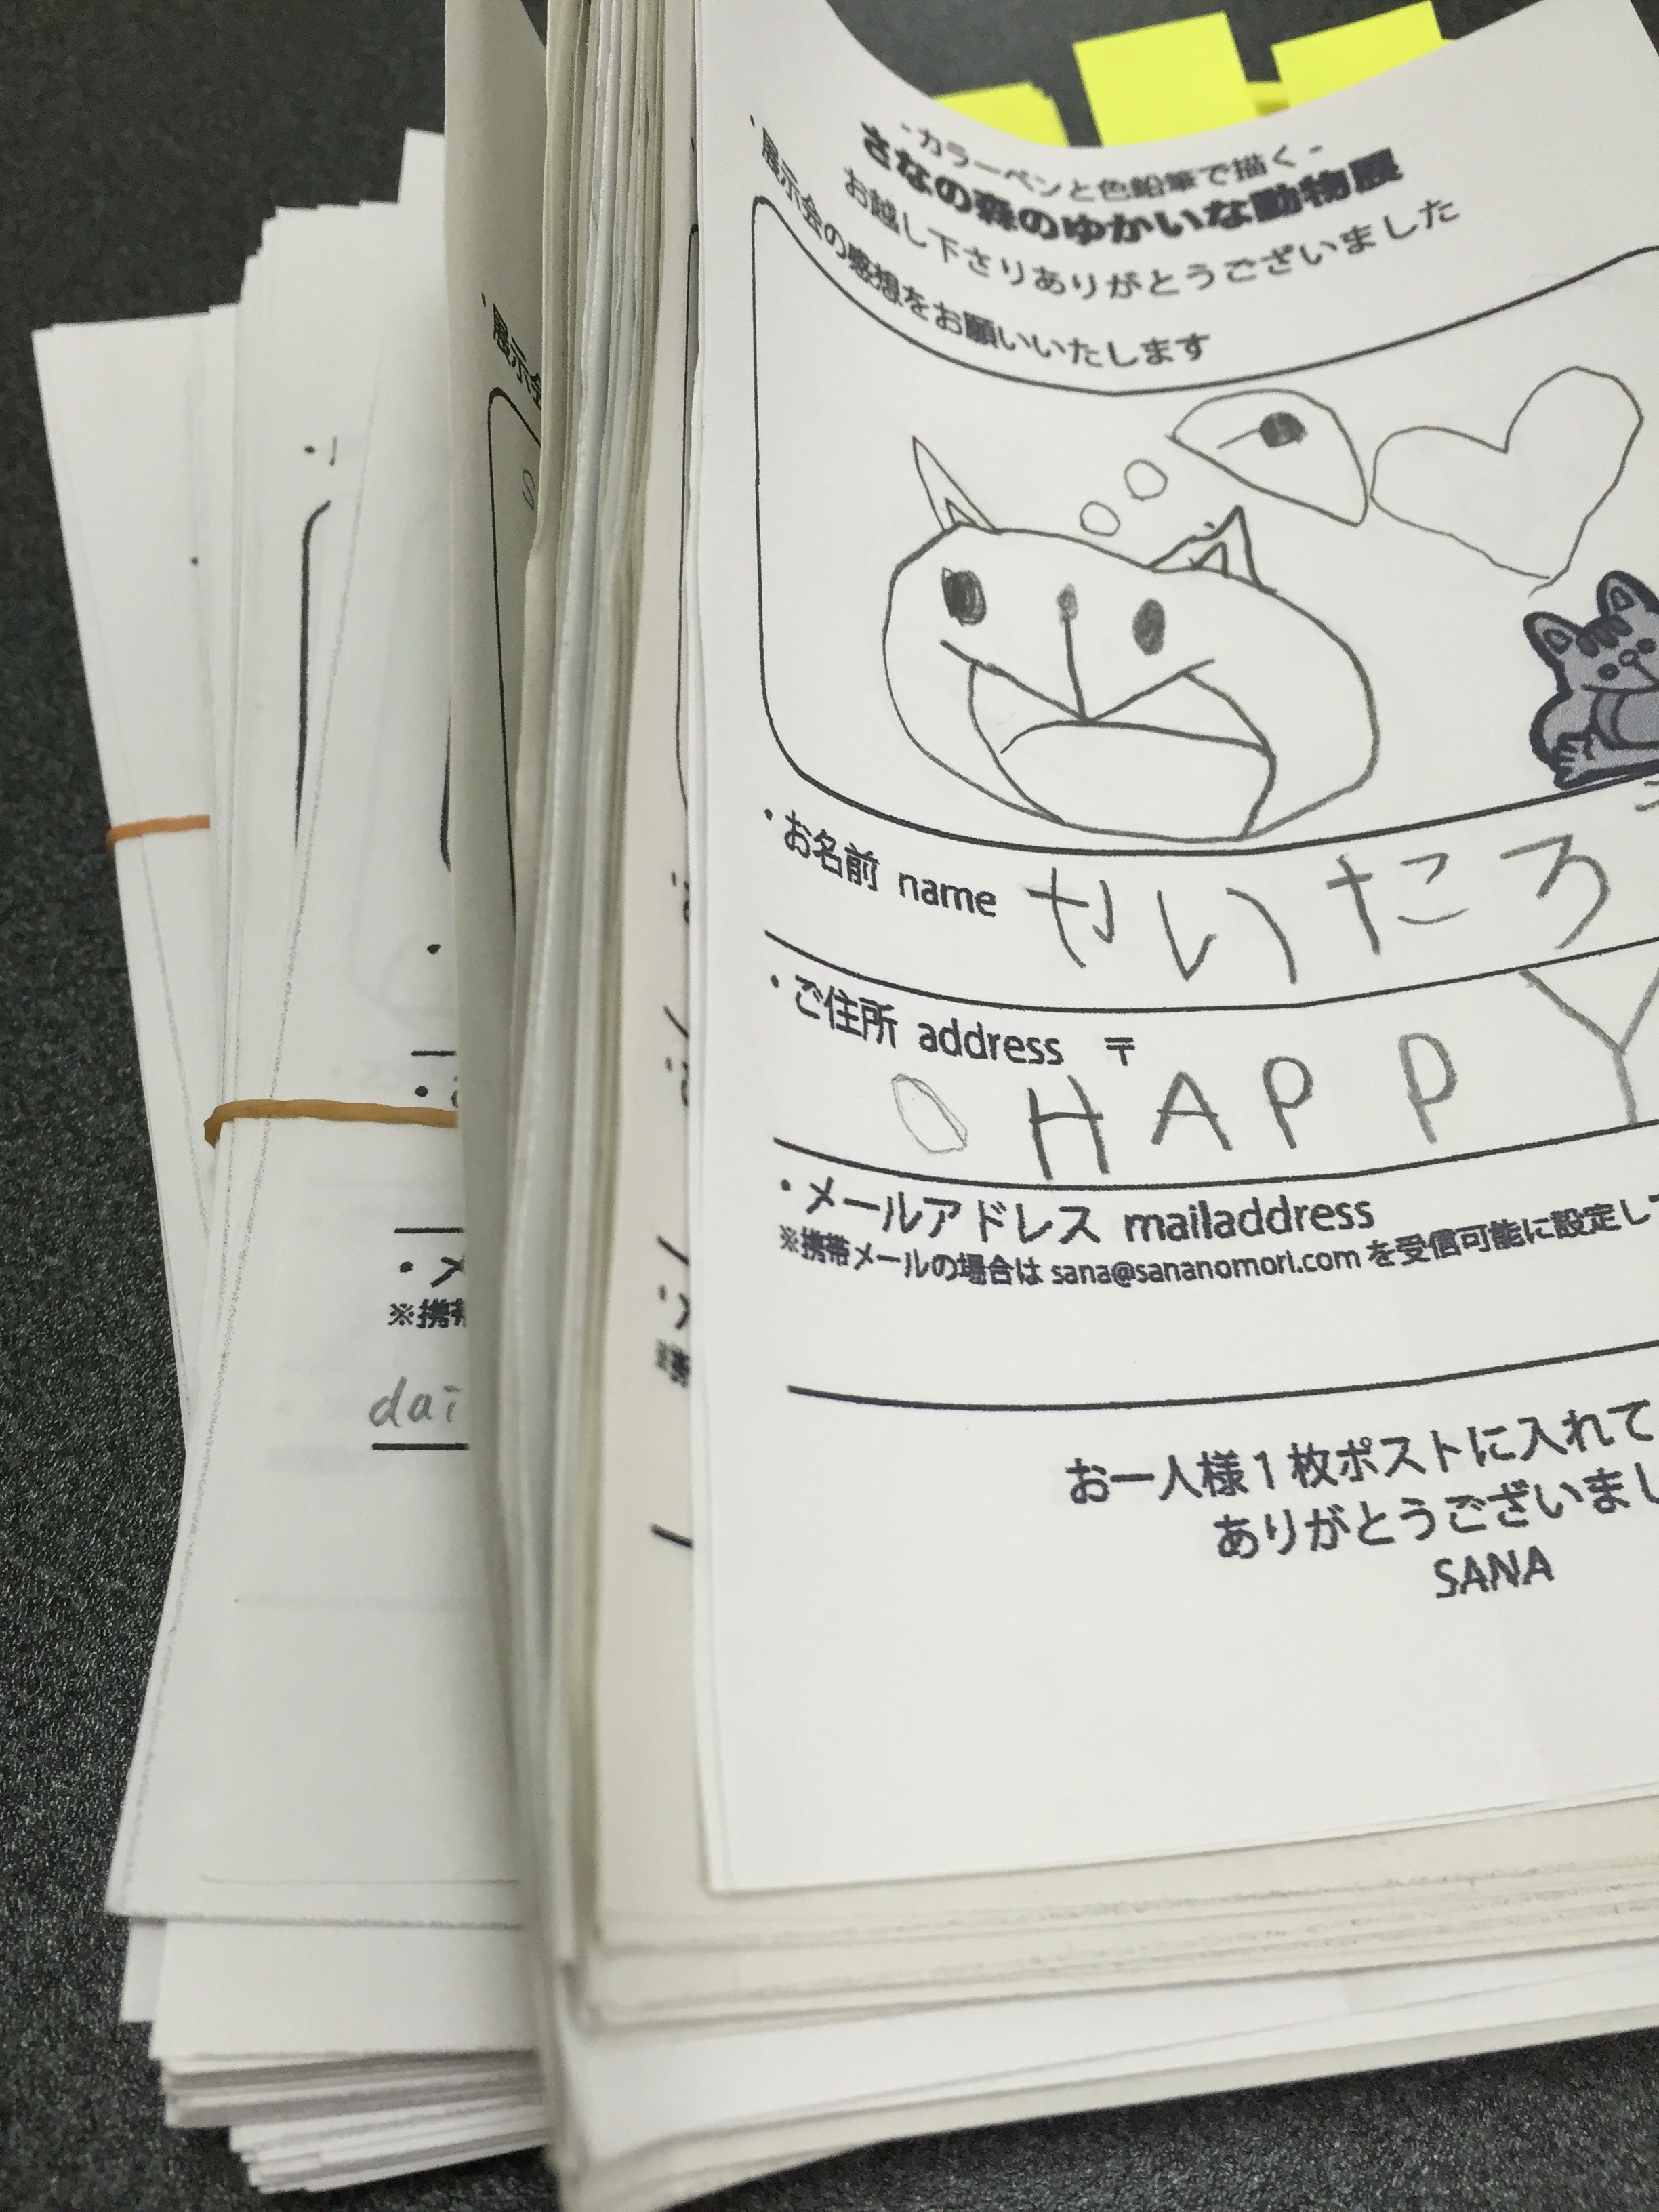 -カラーペンと色鉛筆で描く-
さなの森のゆかいな動物展
お越し下さりありがとうございました
・展示会の感想をお願いいたします
・お名前 name かいたろ
・ご住所 address 〒
HAPPY
・メールアドレス mailaddress
※携帯メールの場合は sana@sananomori.com を受信可能に設定して
お一人様1枚ポストに入れて
ありがとうございまし
SANA
・展示会
・メ
※携帯
dai